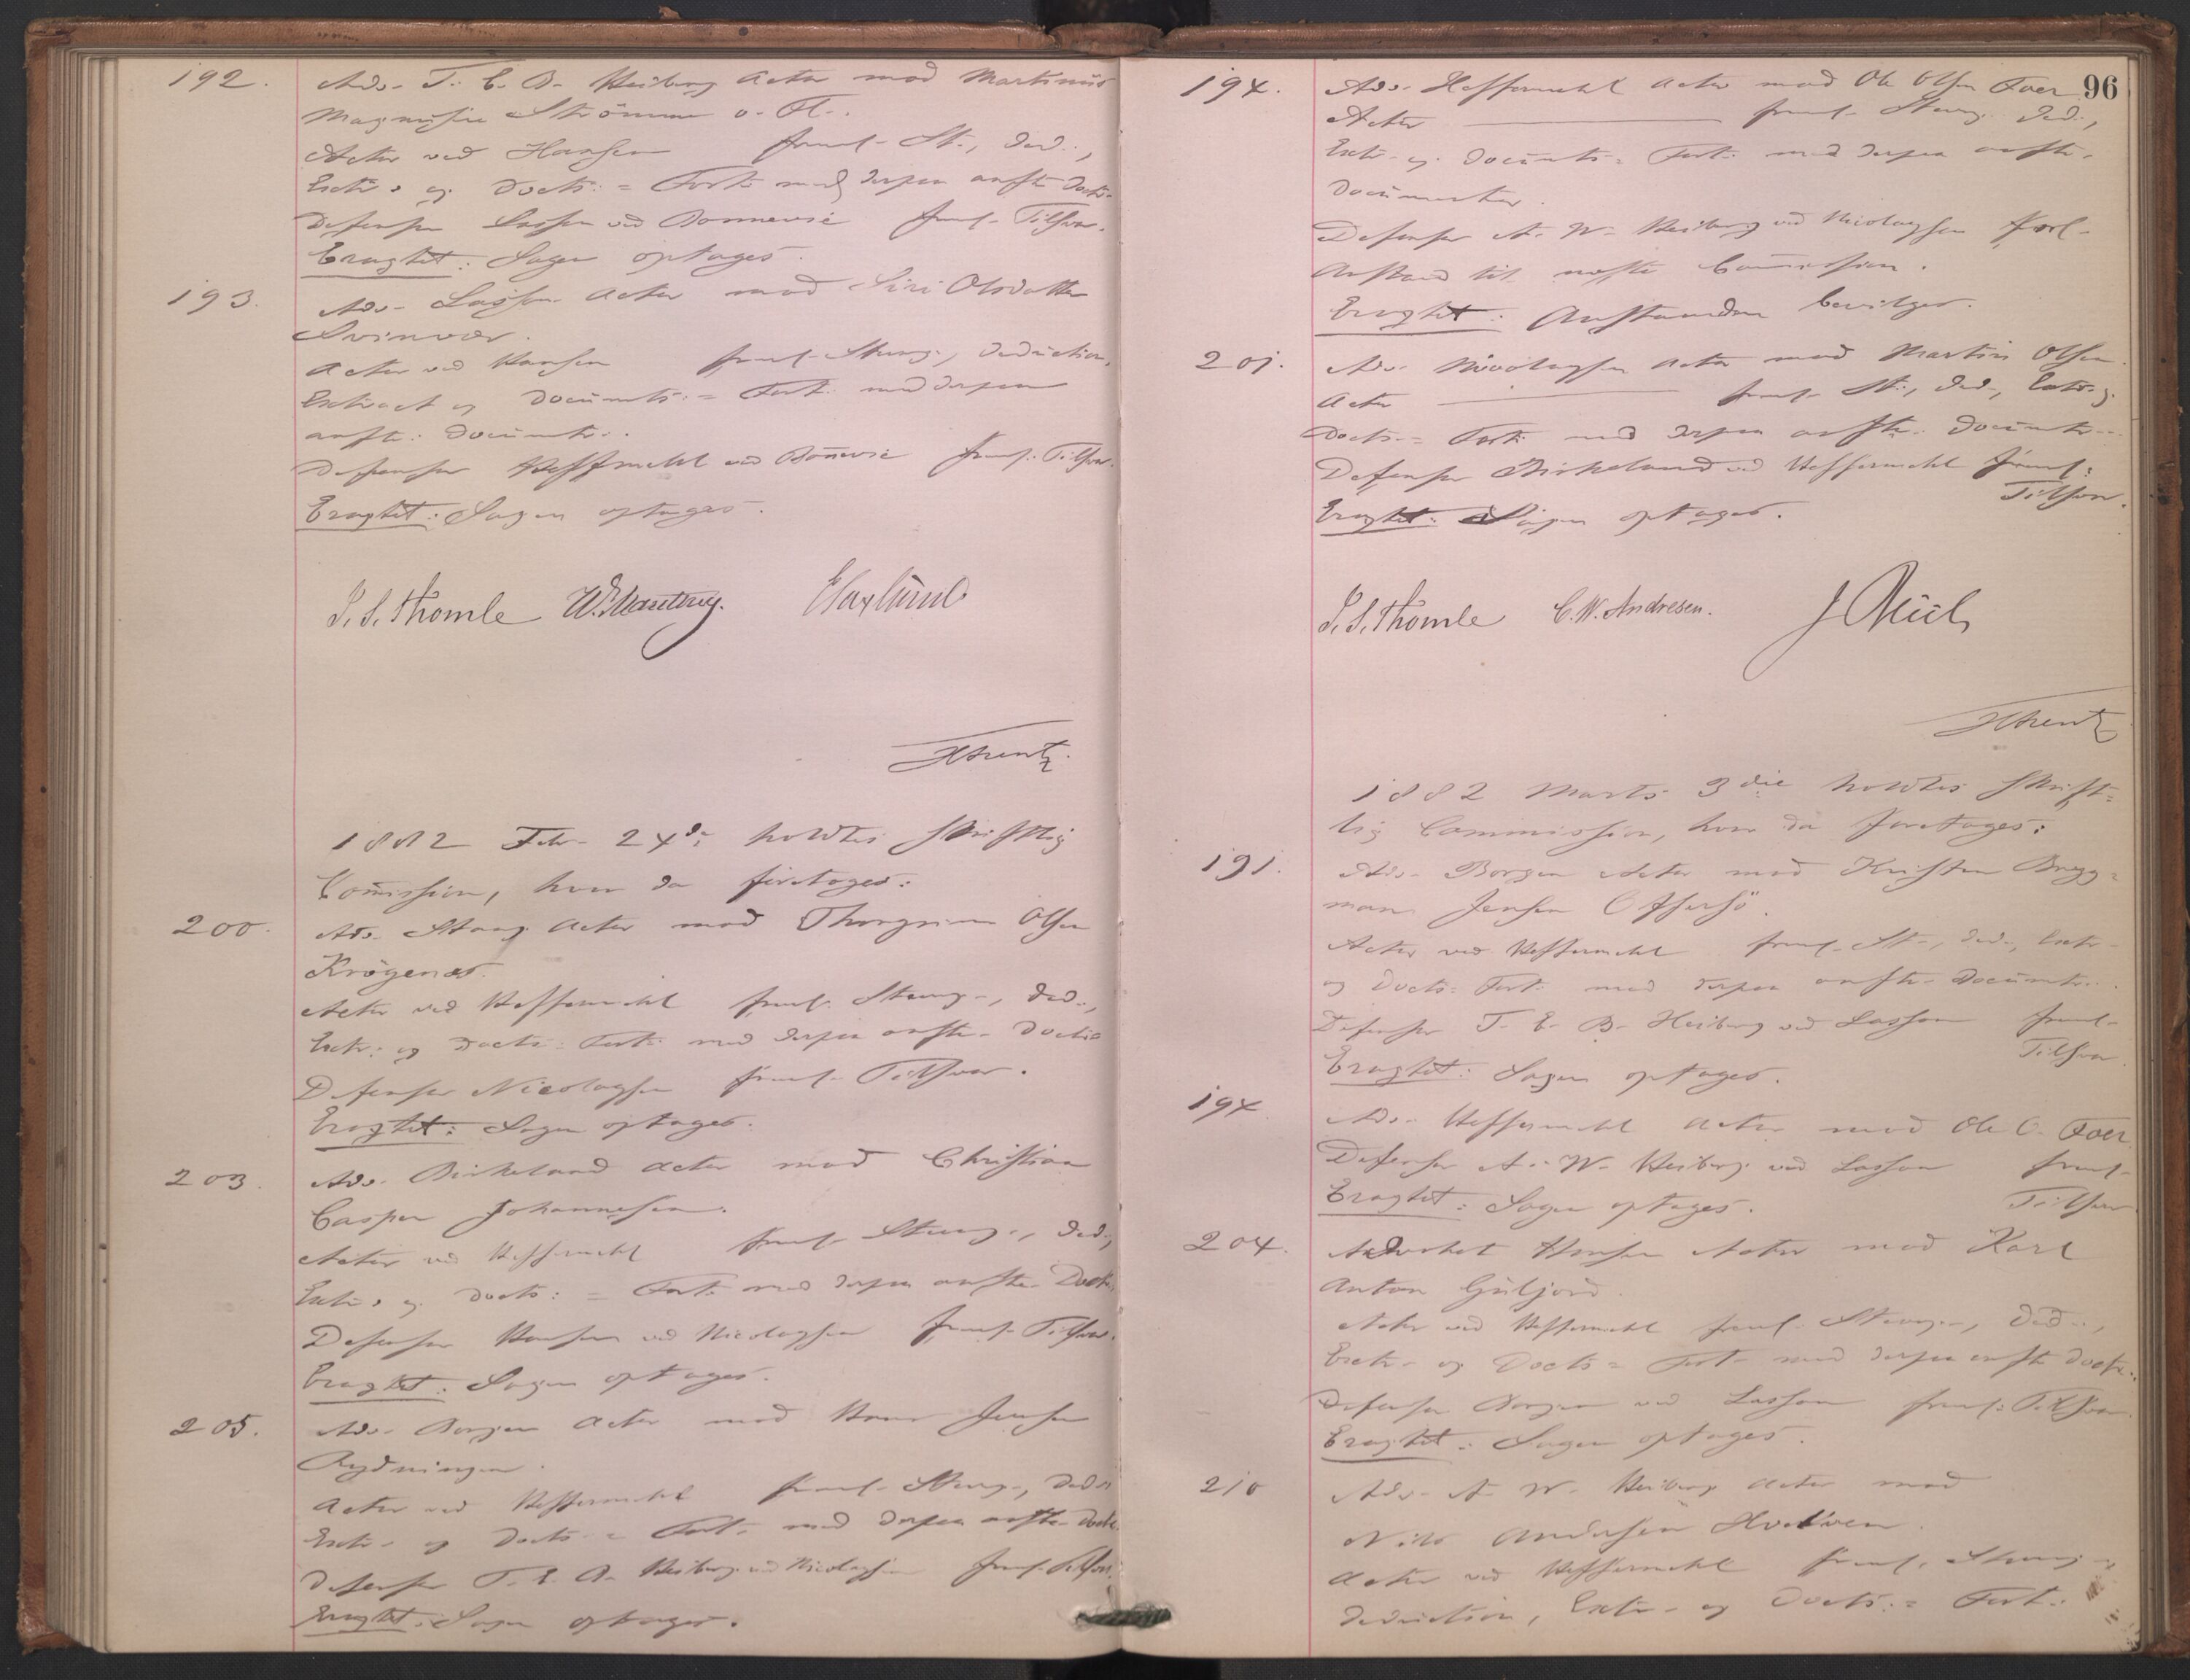 192.
Adv. T. E. B. Heiberg Actor mod Martinus
Magnusen Strömme o. Fl.
Actor ved Hansen freml. St., Ded.,
Extr. og Docts: = Fort. med derpaa anfte Docte.
Defensor Lasson ved Bonnevie freml. Tilsvar.
Eragtet: Sagen optages.
193.
Adv. Lasson Actor mod Siri Olsdatter
Svinvær.
Actor ved Hansen freml. Stevn., Deduction,
Extract og Documts: = Fort. med derpaa
anfte: Documtr.
Defensor Heffermehl ved Bonnevie freml. Tilsvar.
Eragtet: Sagen optages.
S. S. Thomle
1882 Febr. 24de holdtes skriftlig
Commission, hvor da foretoges:
200.
Adv. Stang Actor mod Thorgrim Olsen
Krögenæs.
Actor ved Heffermehl freml. Stevn., Ded.,
Extr. og Docts: Fort. med derpaa anfte Docte
Defensor Nicolaysen freml. Tilsvar.
Eragtet: Sagen optages.
203.
Adv. Birkeland Actor mod Christian
Casper Johannesen.
Actor ved Heffermehl freml. Stevn., Ded.,
Extr. og Docts: = Fort. med derpaa anfte Docte.
Defensor Hansen ved Nicolaysen freml. Tilsvar.
Eragtet: Sagen optages.
205.
Adv. Borgen Actor mod Hans Jensen
Rydningen.
Actor ved Heffermehl freml. Stevn., Ded.,
Extr. og Docts = Fort. med derpaa anfte Docte.
Defensor T. E. B. Heiberg ved Nicolaysen freml. Tilsv.
Eragtet: Sagen optages.
96
194.
Adv. Heffermehl Actor mod Ole Olsen Foer
Actor freml. Stevn. Ded.,
Extr. og Documts = Fort. med derpaa anfte.
Documenter.
Defensor A. W. Heiberg ved Nicolaysen forl.
Anstand til næste Commission.
Eragtet: Anstanden bevilges.
201.
Adv. Nicolaysen Actor mod Martin Olsen
Actor freml. St., Ded., Extr. og
Docts = Fort. med derpaa anfte. Documtr.
Defensor Birkeland ved Heffermehl freml:
Tilsvar.
Eragtet: Sagen optages.
S. S. Thomle C. W. Andresen.
1882 Marts 3die holdtes skrift=
lig Commission, hvor da foretoges:
191.
Adv. Borgen Actor mod Kristen Brygg=
mann Jensen Offersö.
Actor ved Heffermehl freml. St., Ded., Extr.
og Docts = Fort. med derpaa anfte Documtr.
Defensor T. E. B. Heiberg ved Lasson freml.
Tilsvar
Eragtet: Sagen optages.
194
Adv. Heffermehl Actor mod Ole O. Foer
Defensor A. W. Heiberg ved Lasson freml.
Tilsvar
Eragtet: Sagen optages.
204.
Advokat Hansen Actor mod Karl
Anton Guljord.
Actor ved Heffermehl freml. Stevn., Ded.,
Extr. og Docts = Fort. med derpaa anfte Docte.
Defensor Borgen ved Lasson freml: Tilsvar
Eragtet: Sagen optages.
210
Adv. A. W. Heiberg Actor mod
Nils Andersen
Actor ved Heffermehl freml. Stevn.
Deduction, Extr. og Docts: = Fort.